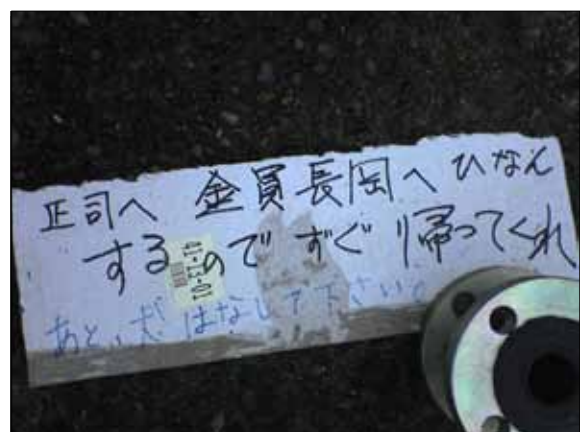 正司へ 金員長岡へひなん
するので すぐ 帰ってくれ
あと、犬 はなして下さい。